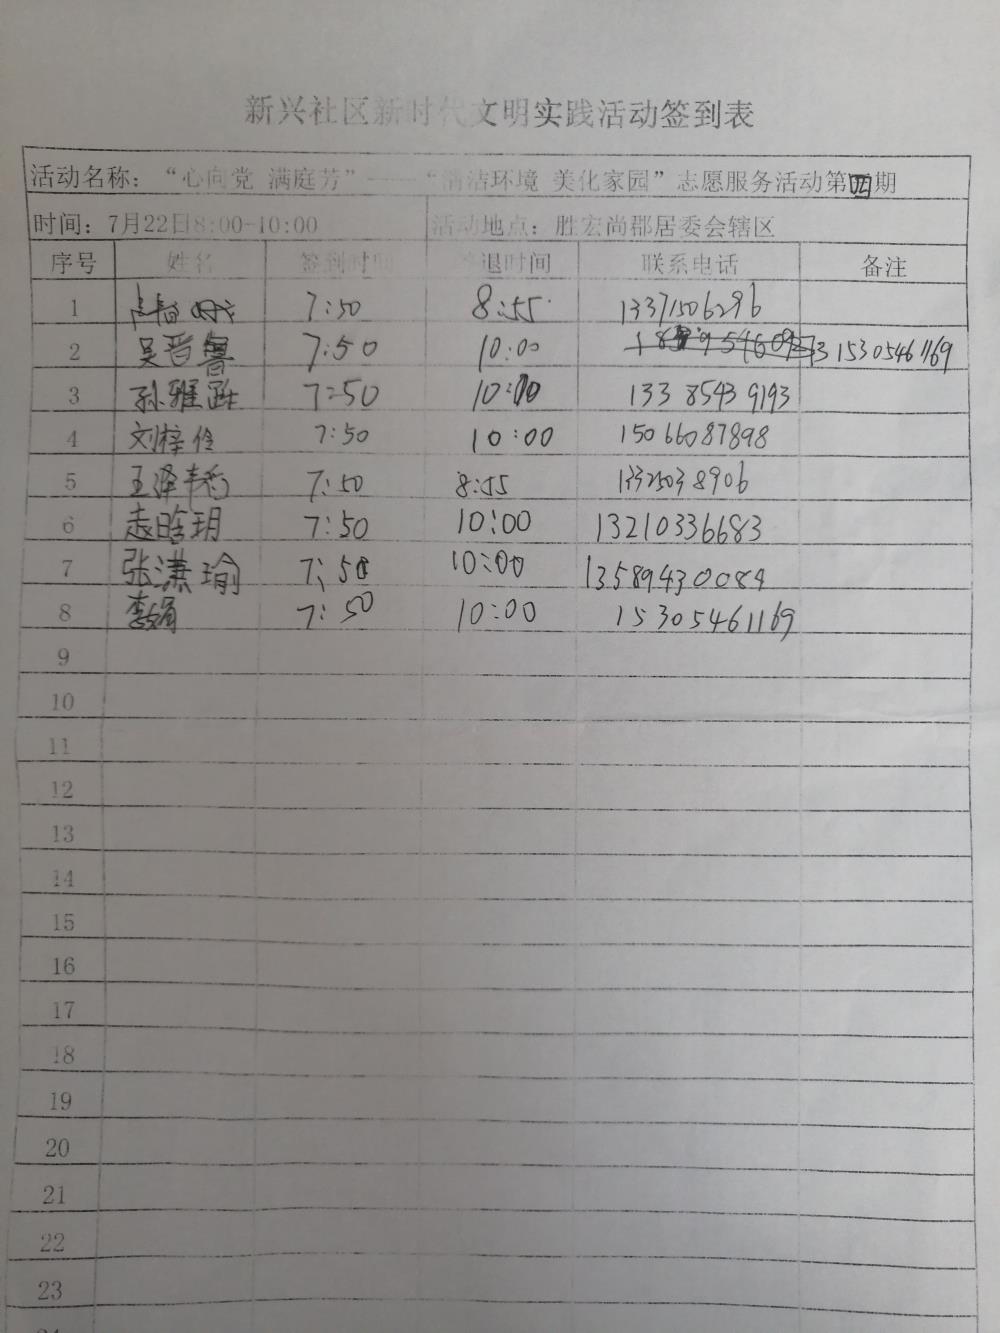 新兴社区新时代文明实践活动签到表
活动名称：“心向党 满庭芳”——“清洁环境 美化家园”志愿服务活动第四期
时间：7月22日8:00-10:00 活动地点：胜宏尚郡居委会辖区
序号 姓名 签到时间 签退时间 联系电话 备注
1 7:50 8:55 13371506296
2 吴晋鲁 7:50 10:00 15305461169
3 孙雅 7:50 10:00 13385439193
4 刘梓伶 7:50 10:00 15066087898
5 王泽 7:50 8:55 13325038906
6 袁晗玥 7:50 10:00 13210336683
7 张潇瑜 7:50 10:00 13589430084
8 李娟 7:50 10:00 15305461169
9
10
11
12
13
14
15
16
17
18
19
20
21
22
23